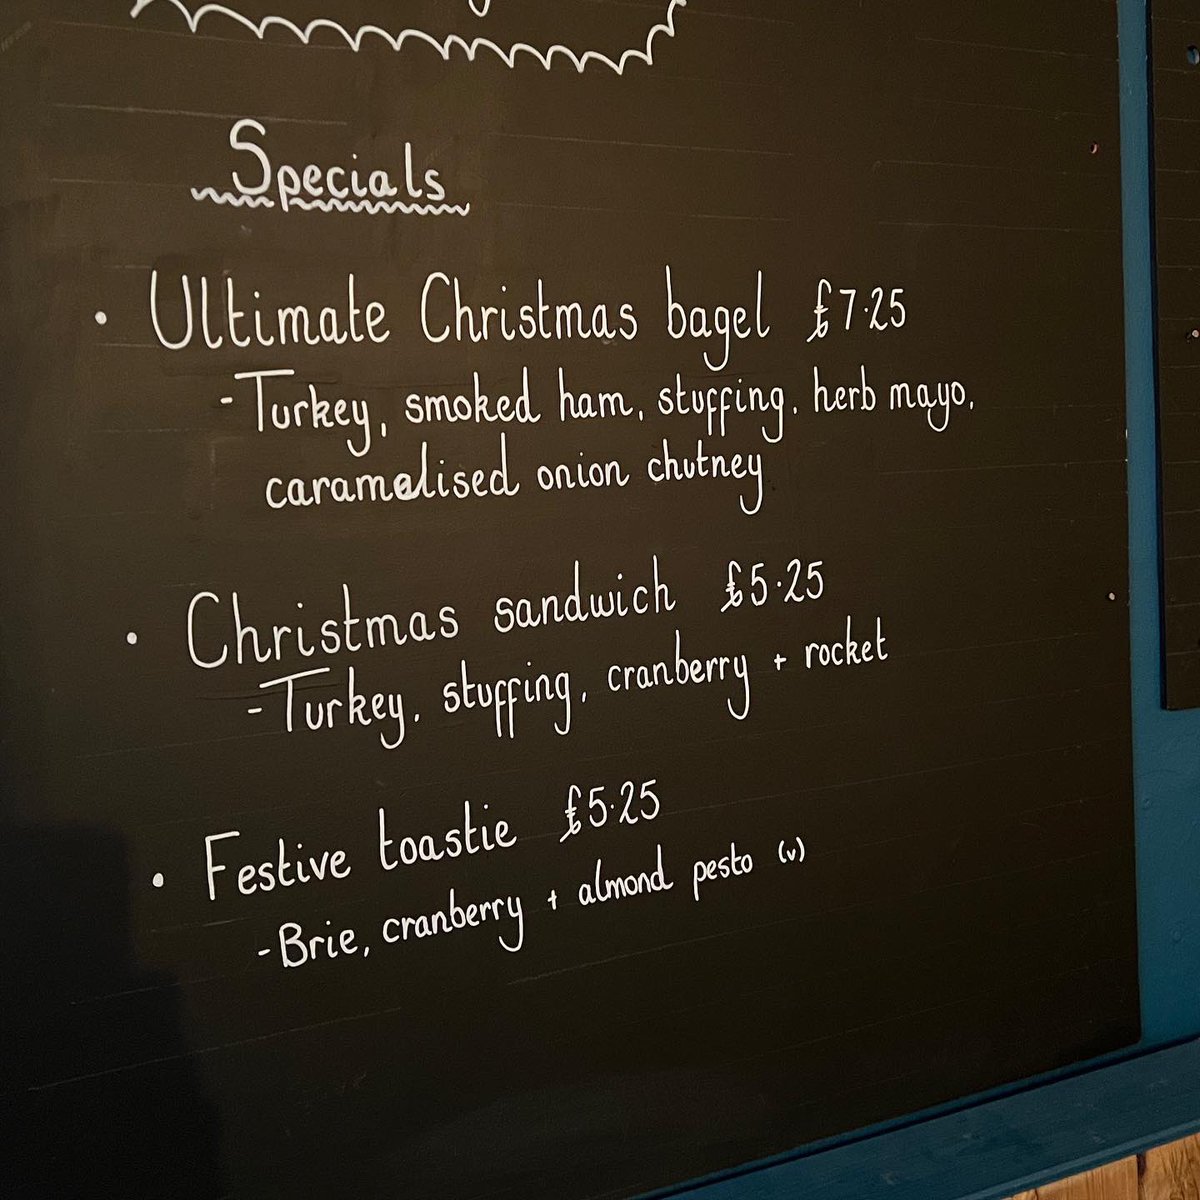 Specials
• Ultimate Christmas bagel £7·25
- Turkey, smoked ham, stuffing, herb mayo,
caramelised onion chutney
• Christmas sandwich £5·25
- Turkey, stuffing, cranberry + rocket
• Festive toastie £5·25
- Brie, cranberry + almond pesto (v)